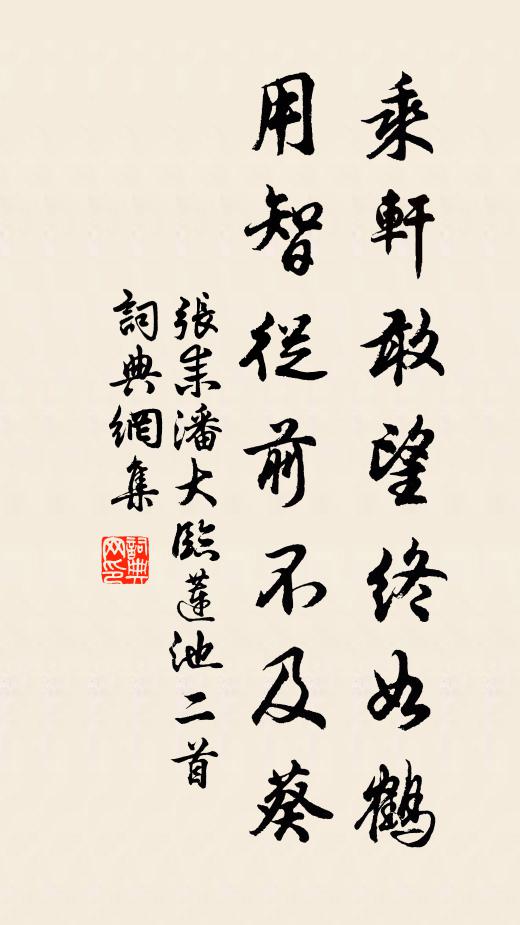 乘軒敢望終如鶴
用智從前不及葵
張耒潘大臨蓮池二首
詞典網集
詞典
网印